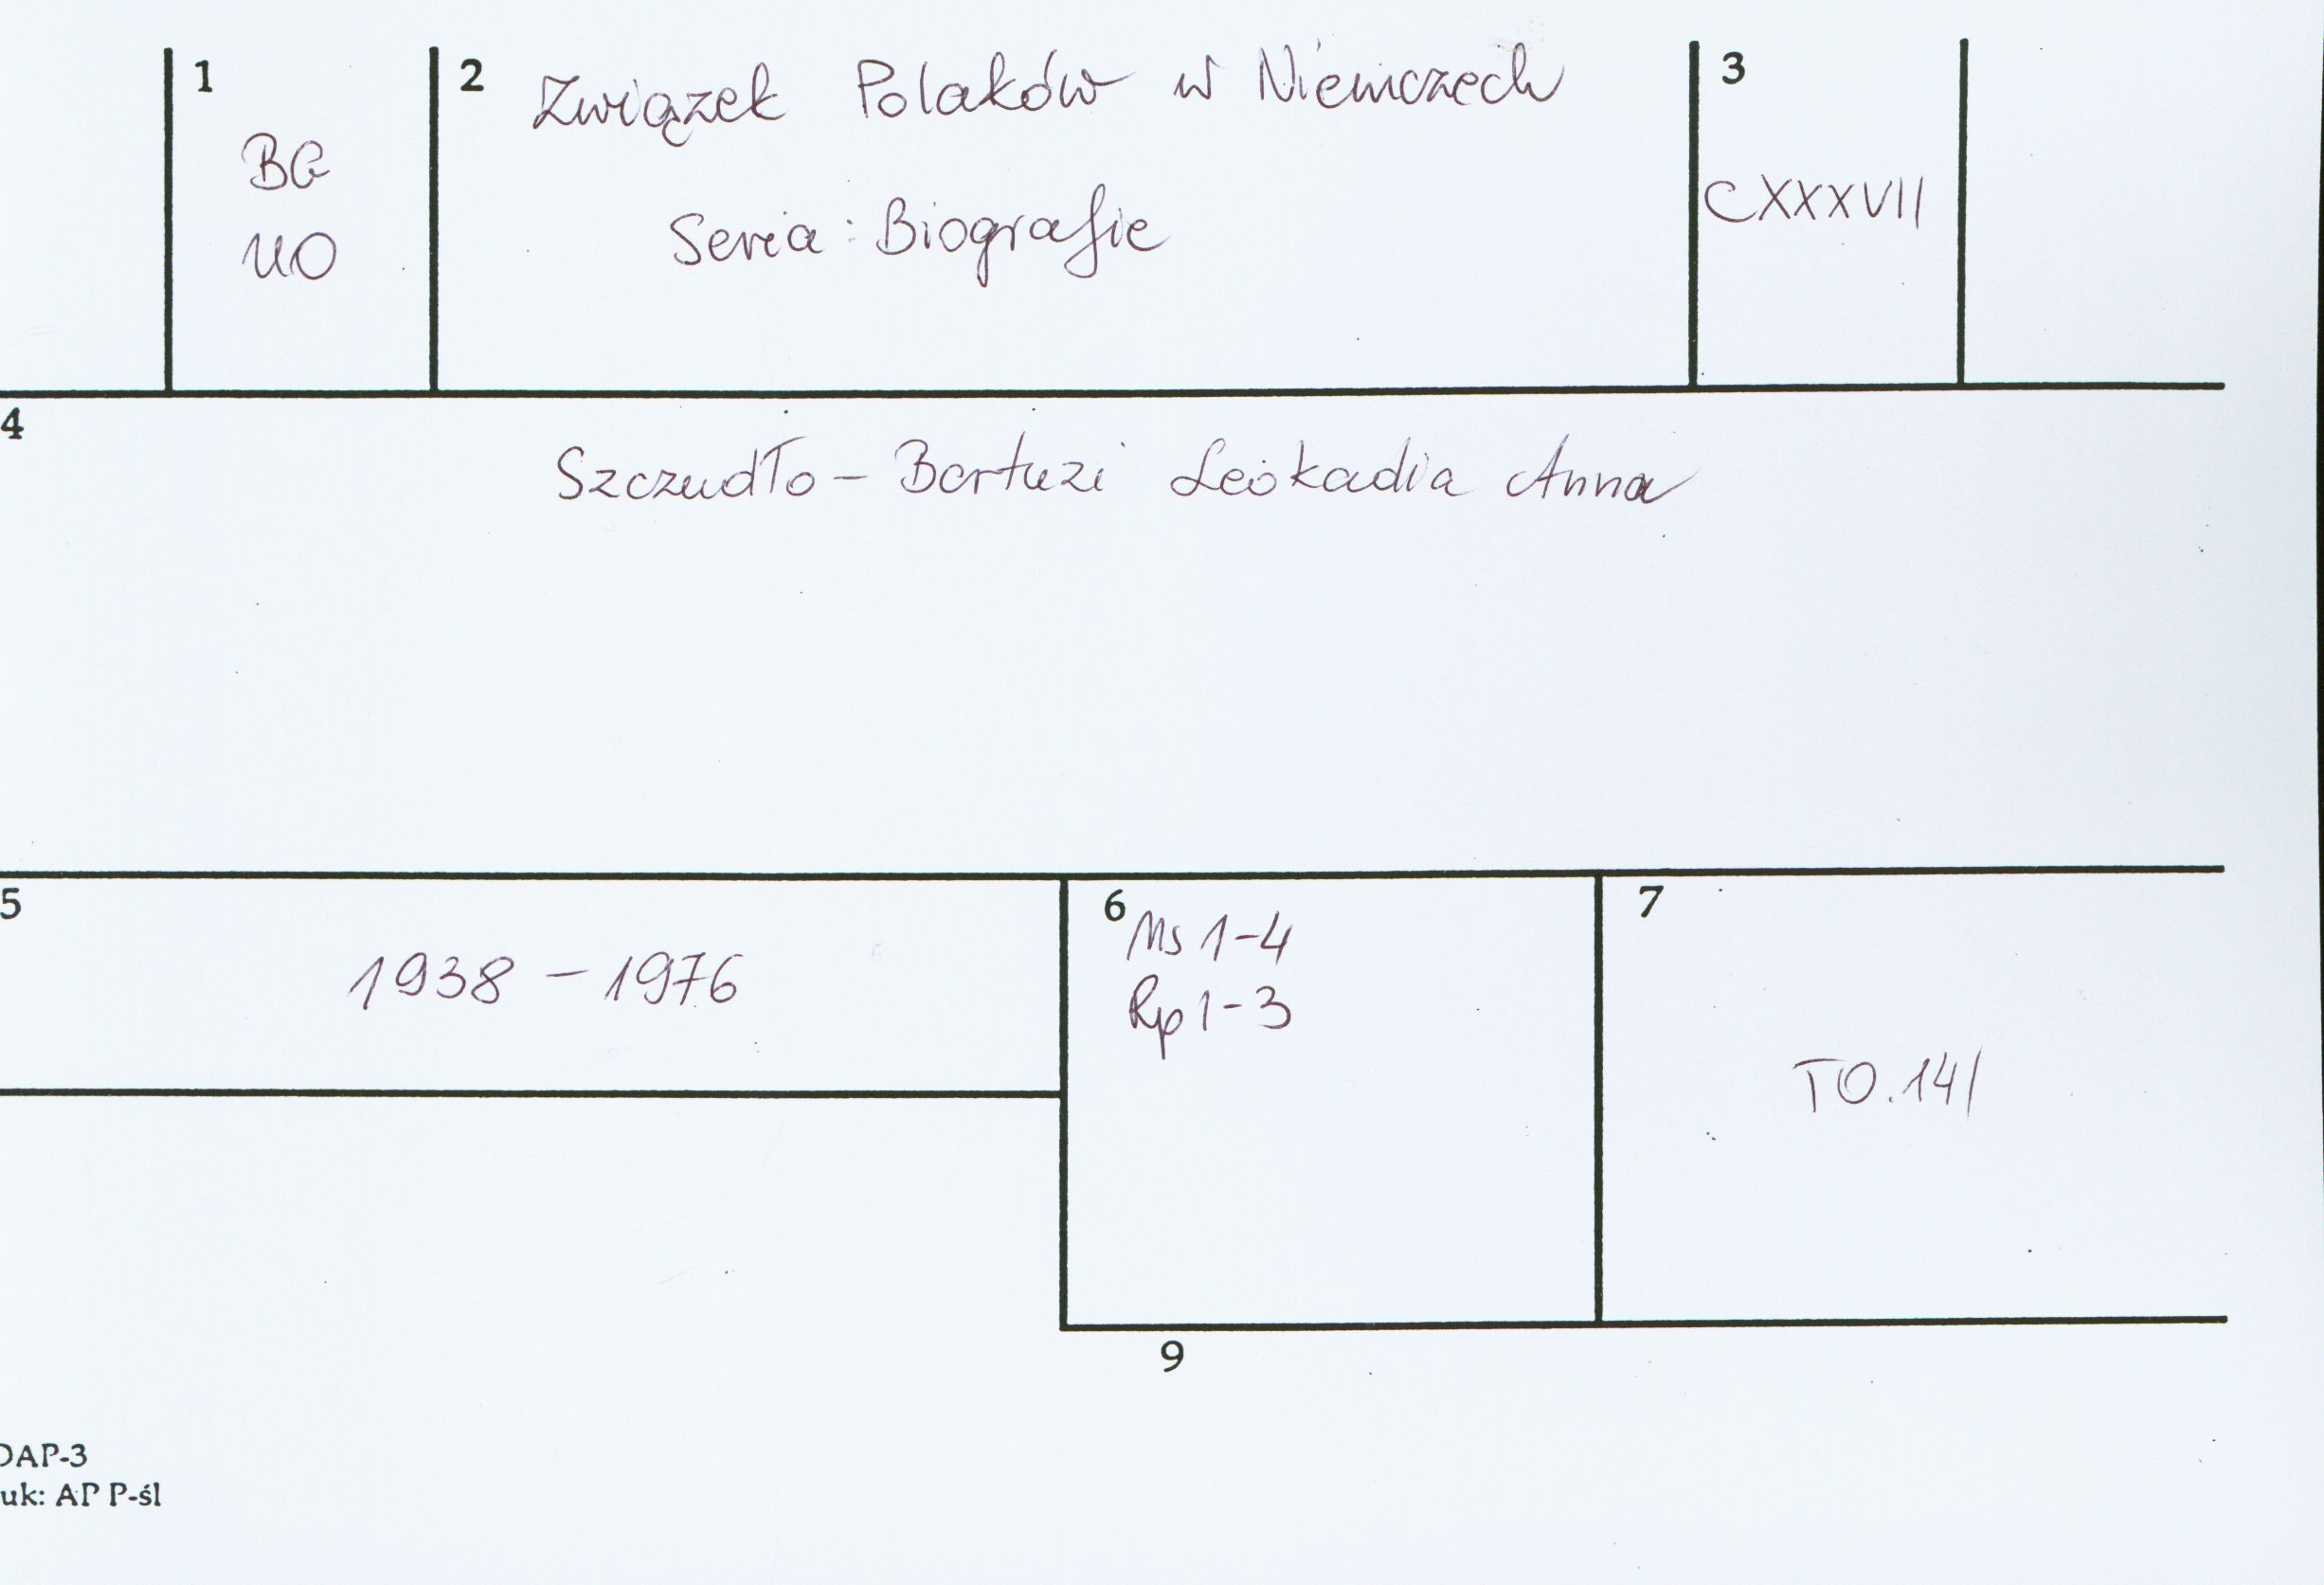 1
BG
UO
2 Związek Polaków w Niemczech
Seria: Biografie
3
CXXXVII
4
Szczudło - Bartuzi Leokadia Anna
5
1938 - 1976
6 Ms 1-4
Rp 1-3
7
TO.14/
9
DAP-3
uk: AP P-śl